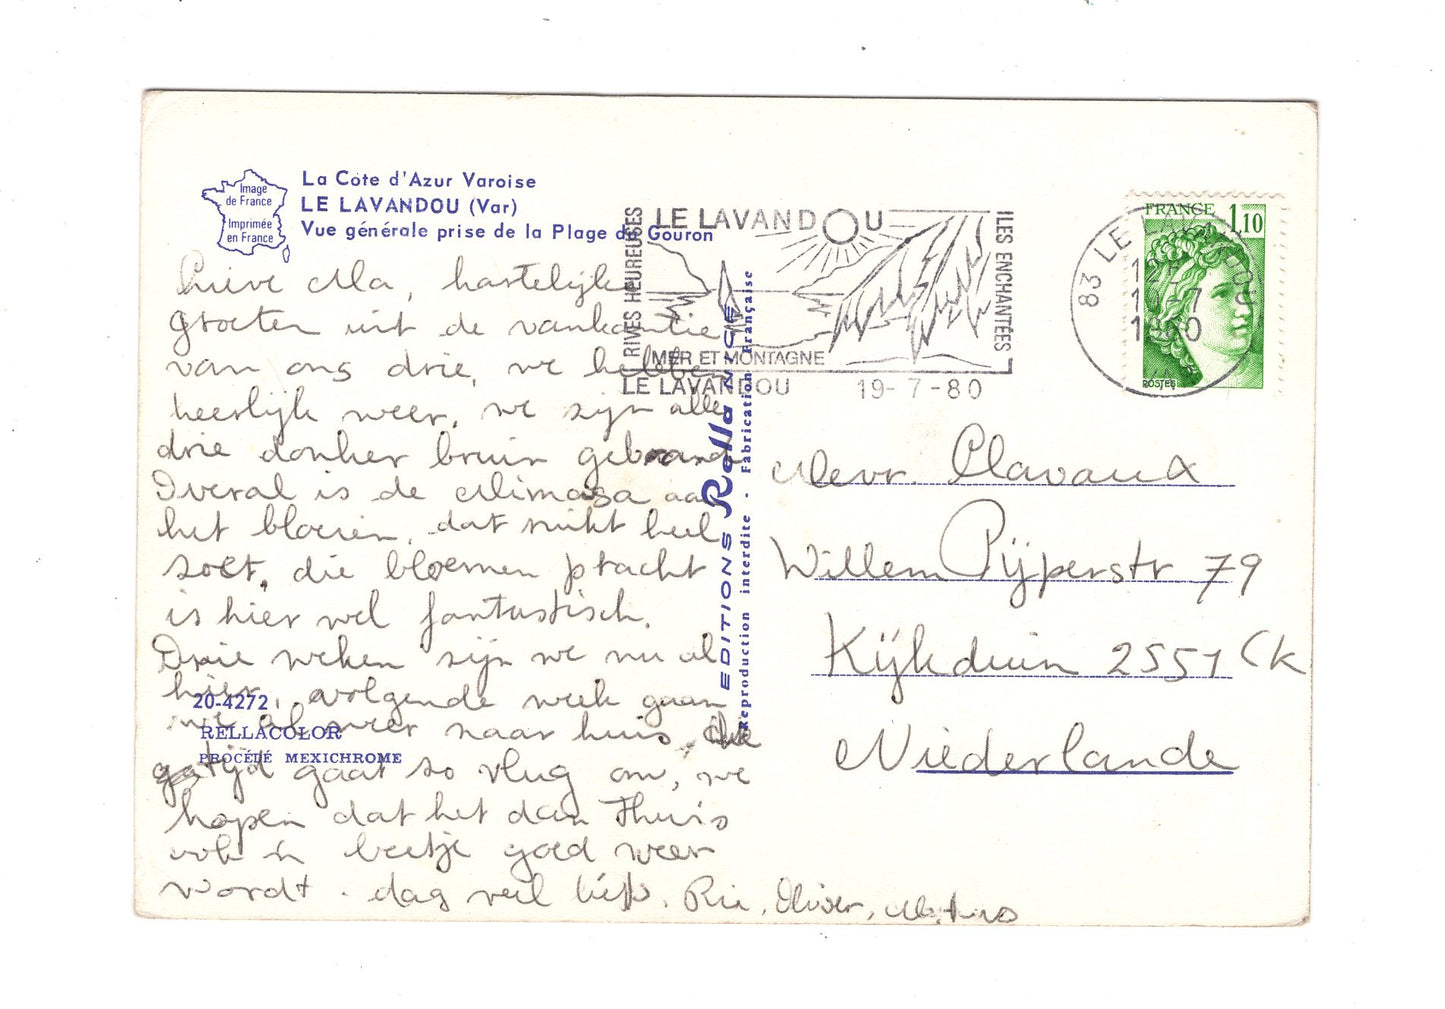 Image
de France
Imprimée
en France
La Côte d'Azur Varoise
LE LAVANDOU (Var)
Vue générale prise de la Plage de Gouron
Lieve Ma, hartelijke
groeten uit de vankantie
van ons drie, we hebben
heerlijk weer, we zijn alle
drie donker bruin gebrand
Overal is de Mimosa aan
het bloeien, dat ruikt heel
zoet, die bloemen pracht
is hier wel fantastisch.
Drie weken zijn we nu al
hier, volgende week gaan
we al weer naar huis, de
tijd gaat zo vlug om, we
hopen dat het dan Thuis
ook 'n beetje goed weer
wordt. dag veel liefs. Ria, Olivier,
20-4272
RELLACOLOR
PROCÉDÉ MEXICHROME
EDITIONS Rella NICE
Reproduction interdite - Fabrication Française
RIVES HEUREUSES
LE LAVANDOU
ILES ENCHANTÉES
MER ET MONTAGNE
LE LAVANDOU 19-7-80
83 LE LAVANDOU
FRANCE 1,10
POSTES
Mevr. Clavaux
Willem Pijperstr 79
Kijkduin 2551 CK
Niederlande